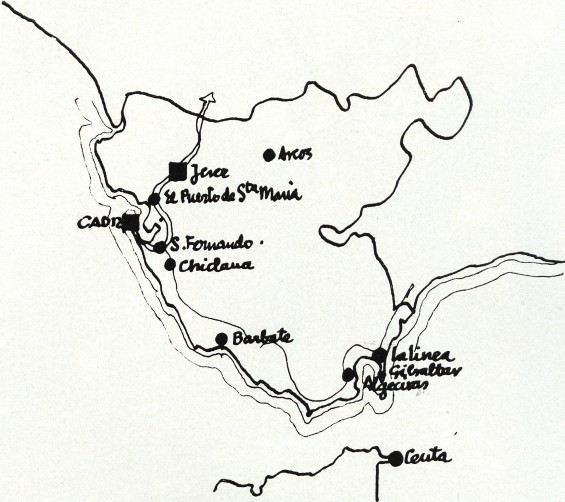 Arcos
Jerez
El Puerto de Sta Maria
CADIZ
S. Fernando.
Chiclana
Barbate
La linea
Gibraltar
Algeciras
Ceuta